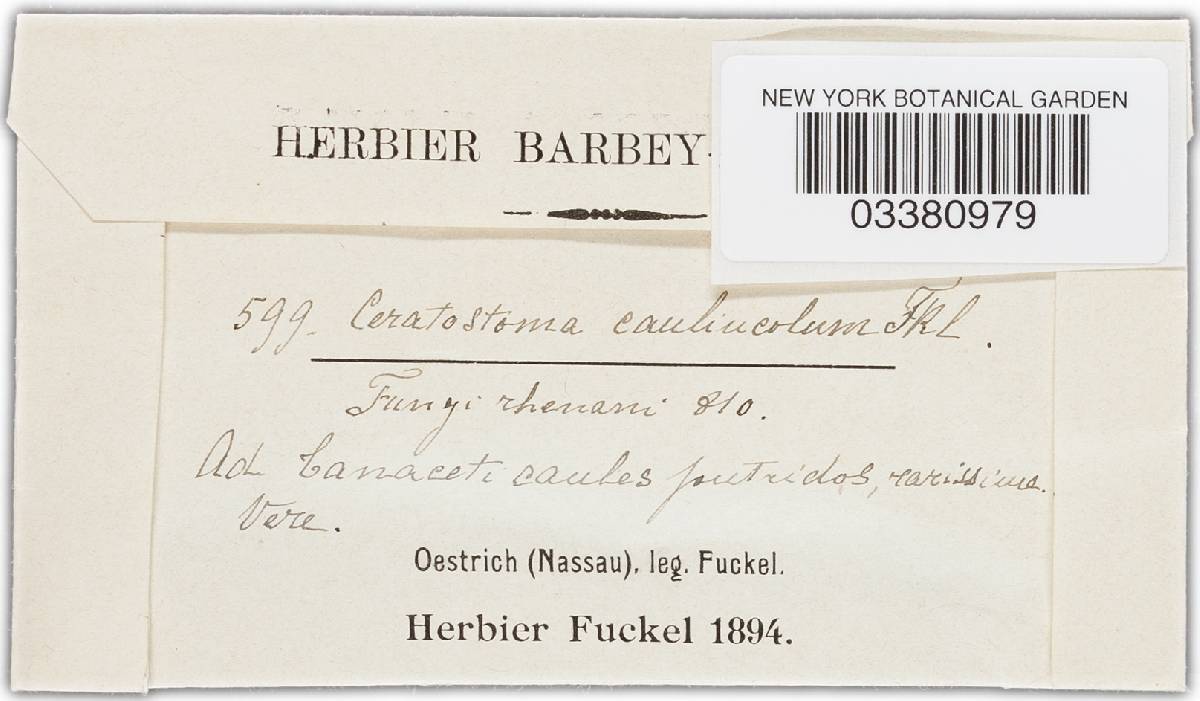 NEW YORK BOTANICAL GARDEN
03380979
HERBIER BARBEY-
599. Ceratostoma cauliucolum Fkl.
Fungi rhenani 810.
Ad Tanaceti caules putridos, rarissime.
Vere.
Oestrich (Nassau), leg. Fuckel.
Herbier Fuckel 1894.